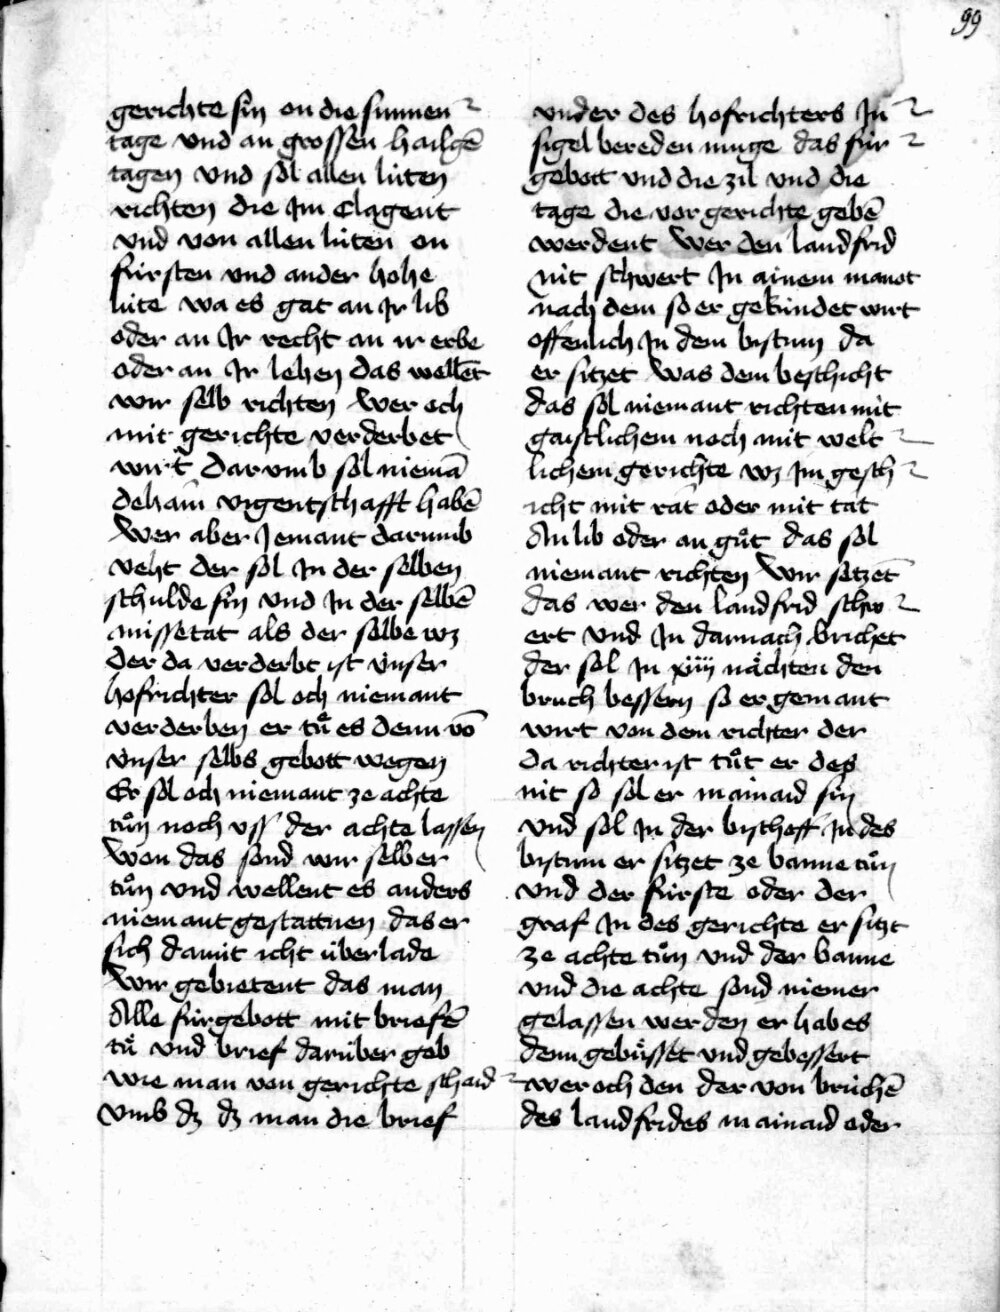 99
gerichte sin on die sunnen
tage vnd an grossen hailgē
tagen vnd sol allen lüten
richten die Im Clagent
vnd von allen lüten on
fürsten vnd ander hohe
lüte wa es gat an Ir lib
oder an Ir recht an ir erbe
oder an Ir lehen das wellēt
wir selb richten Wer och
mit gerichte verderbet
wirt darumb sol niemā
dehain vigentschafft habē
Wer aber Jemant darumb
veht der sol In der selben
schulde sin vnd In der selbē
missetat als der selbe wz
der da verderbt ist vnser
hofrichter sol och niemant
verderben er tuͦ es denn vō
vnser selbs gebott wegen
Er sol och niemant ze achte
tuͦn noch vss der achte lassen
Won das sond wir selber
tuͦn vnd wellent es anders
niemant gestattnen das er
sich damit icht überlade
Wir gebietent das man
Alle fürgebott mit briefē
tuͤ vnd brief darüber geb
wie man von gerichte schaid
vmb dz dz man die brief
vnder des hofrichters In
sigel bereden muge das für
gebott vnd die zil vnd die
tage die vor gerichte gebē
werdent Wer den landfrid
nit schwert In ainem manot
nach dem so er gekündet wirt
offenlich In dem bistum da
er sitzet Was dem beschicht
das sol niemant richten mit
gaistlichem noch mit welt
lichem gerichte wz Im gesch
icht mit rat oder mit tat
An lib oder an guͦt das sol
niemant richten Wir setzēt
das wer den landfrid schw
ert vnd In darnach brichet
der sol In xiiij nächten den
bruch bessern so er gemant
wirt von dem richter der
da richter ist tuͦt er des
nit so sol er mainaid sin
vnd sol In der bischoff In des
bistum er sitzet ze banne tuͦn
vnd der fürste oder der
graf In des gerichte er sitzt
ze achte tuͦn vnd der banne
vnd die achte sond niemer
gelassen werden er hab es
denn gebuͤsset vnd gebessert
wer och den der von brüchē
des landfrides mainaid oder